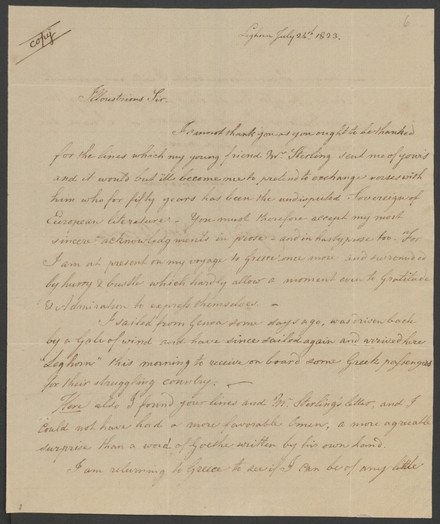 6
copy
Leghorn July 24th. 1823.
Illoustrious Sir.
I cannot thank you as you ought to be thanked
for the lines which my young friend Mr. Sterling sent me of yours
and it would but ill become me to pretend to exchange verses with
him who for fifty years has been the undisputed Sovereign of
European literature. - You must therefore accept my most
sincere acknowledgments in prose - and in hasty prose too. For
I am at present on my voyage to Greece once more and surrounded
by hurry & bustle which hardly allow a moment even to Gratitude
& Admiration to express themselves -
I sailed from Genoa some days ago, was driven back
by a Gale of wind and have since sailed again and arrived here
"Leghorn" this morning to receive on board some Greek passengers
for their struggling country. -
Here also I found your lines and Mr. Sterling's letter, and I
could not have had a more favorable Omen, a more agreeable
surprise than a word of Goethe written by his own hand.
I am returning to Greece to see if I can be of any little